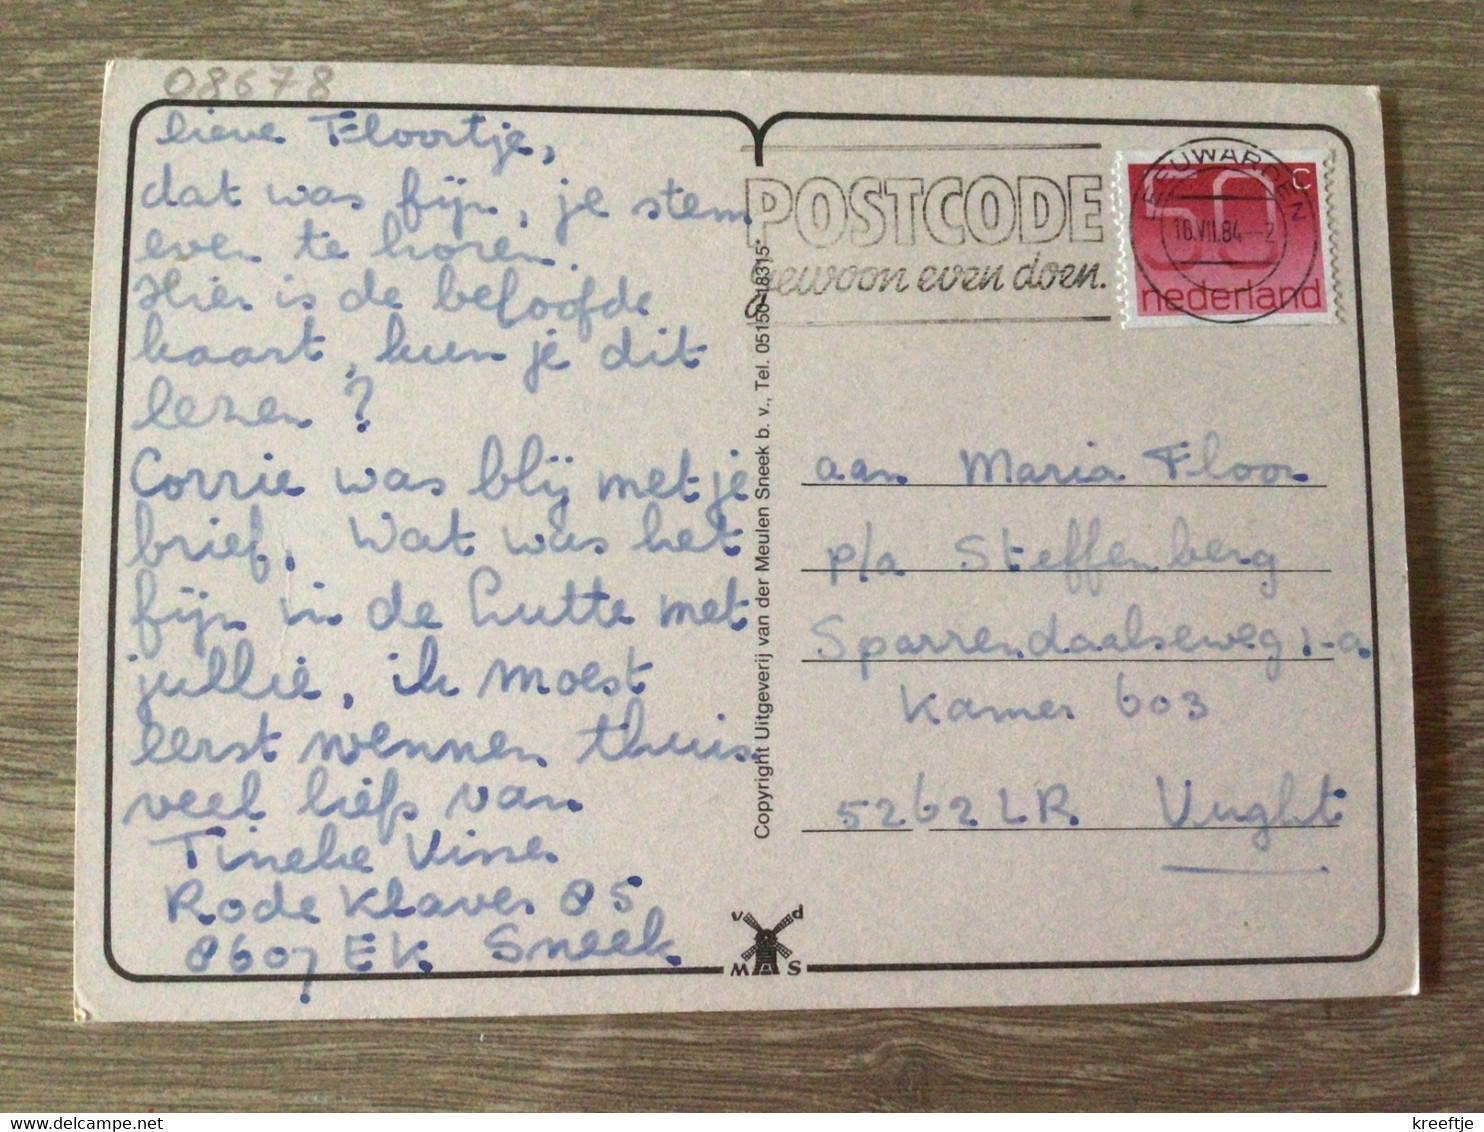 08678
lieve Floortje,
dat was fijn, je stem
even te horen.
Hier is de beloofde
kaart, kun je dit
lezen?
Corrie was blij met je
brief. Wat was het
fijn in de hutte met
jullie, ik moest
eerst wennen thuis.
veel liefs van
Tineke
Rode Klaver 85
8607 EK Sneek
Copyright Uitgeverij van der Meulen Sneek b. v., Tel. 05150-18315*
v d
M S
POSTCODE
gewoon even doen.
LEEUWARDEN
16.VII.84--2
50 c
nederland
aan Maria Floor
p/a Steffenberg
Sparrendaalseweg 1-a
Kamer 603
5262 LR Vught
delcampe.net
kreeftje